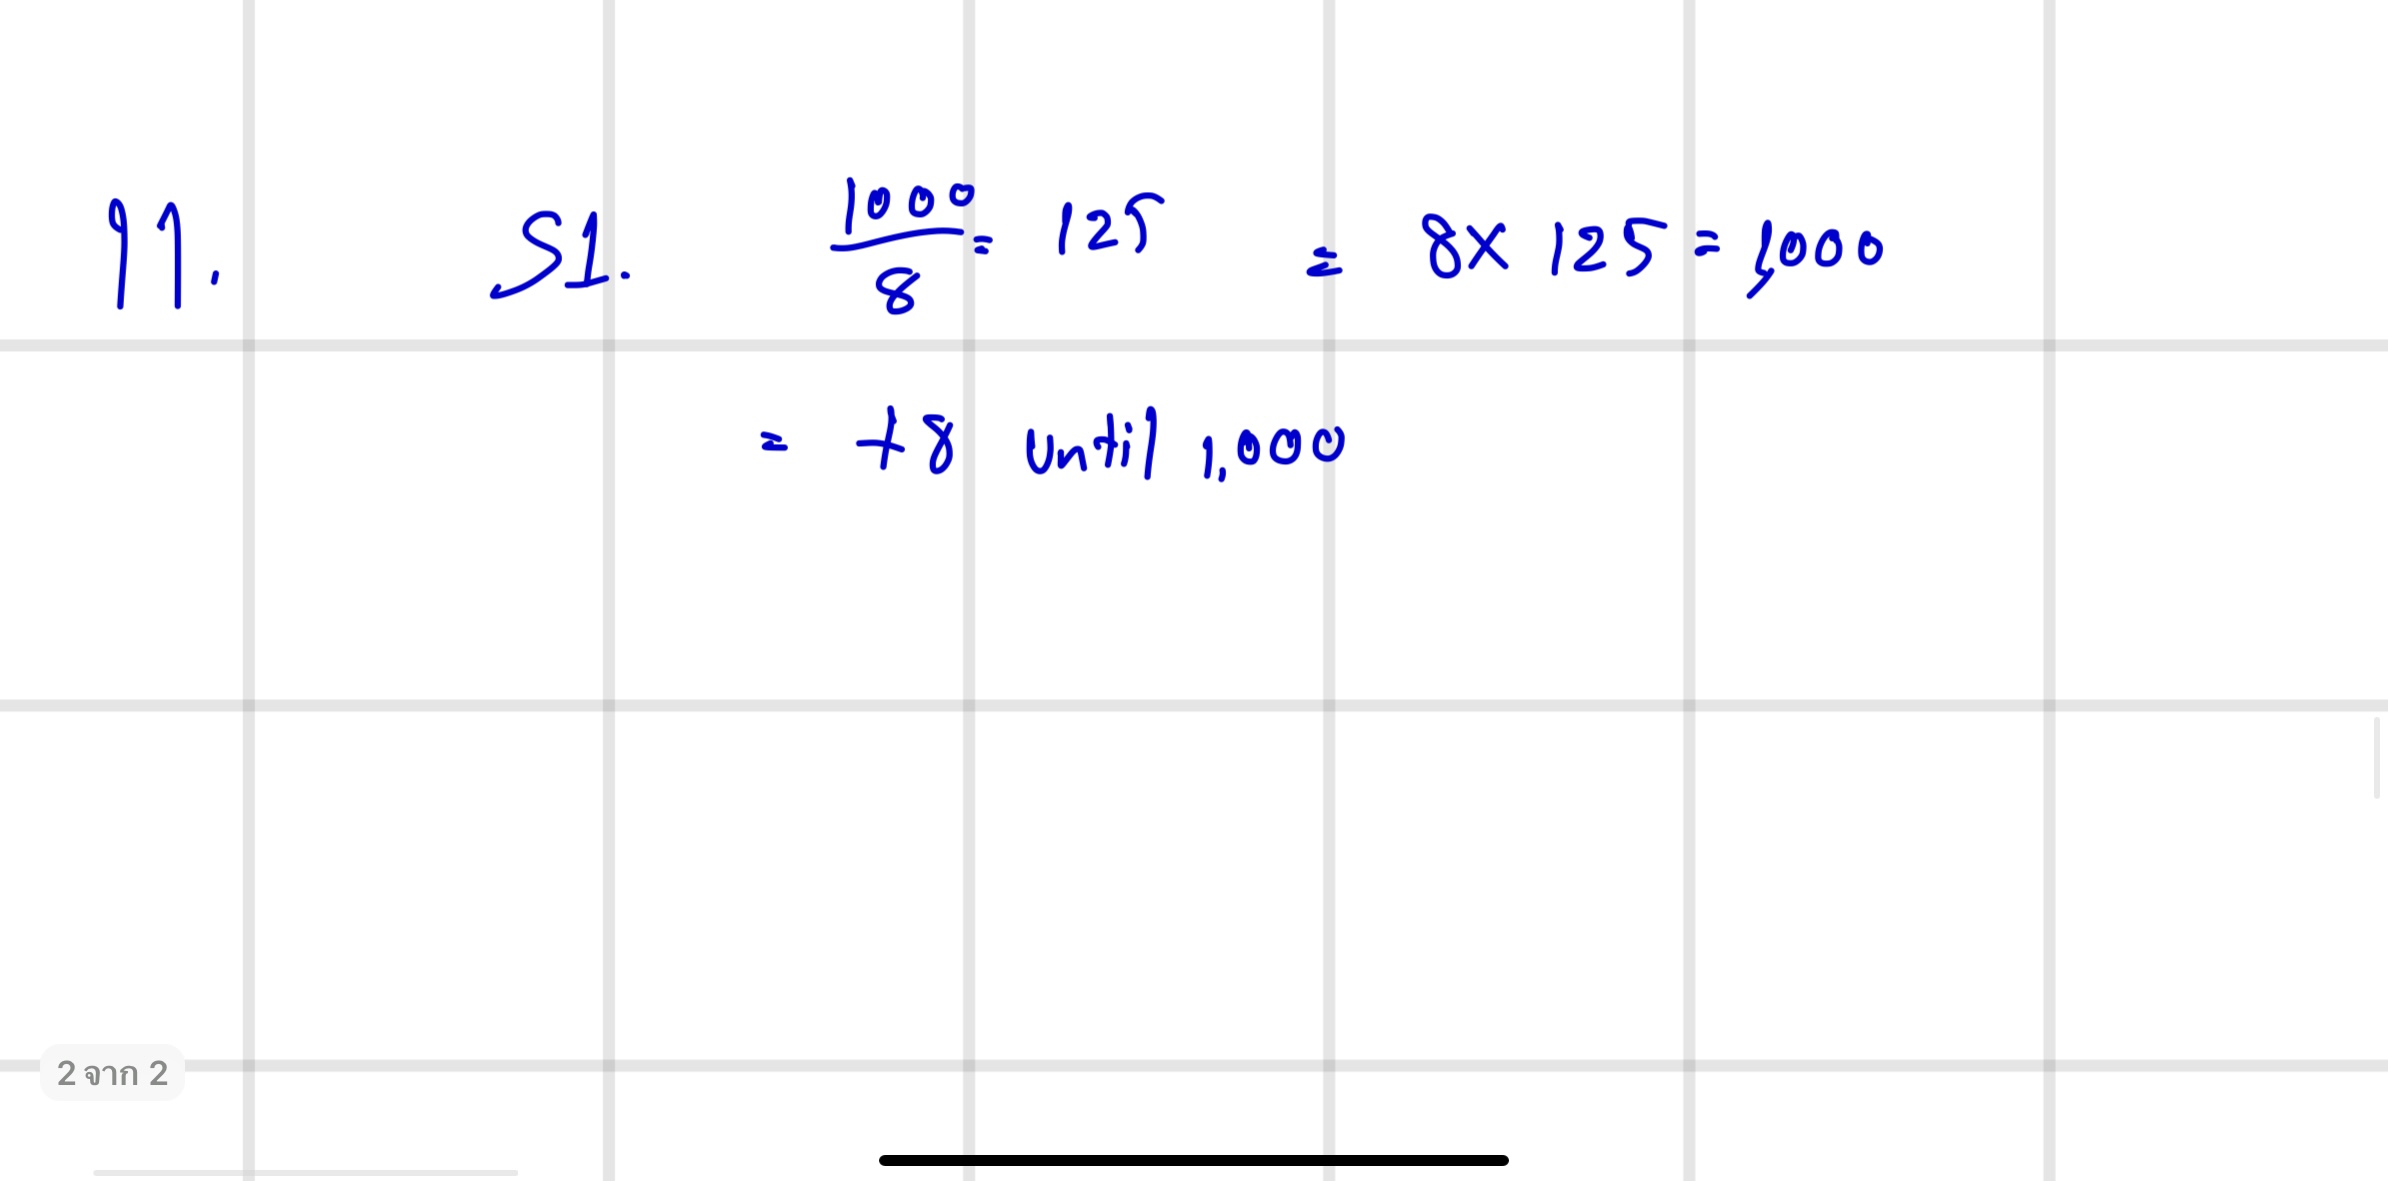 11. S1. 1000/8 = 125 = 8x 125 = 1,000
= +8 until 1,000
2 จาก 2